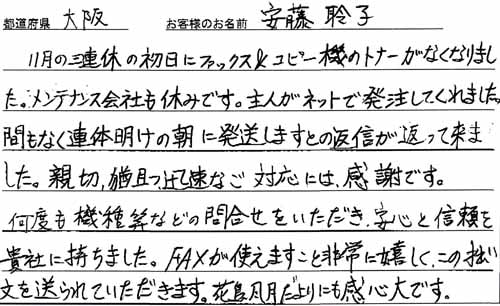 都道府県 大阪 お客様のお名前 安藤 聆子
11月の三連休の初日にファックス&コピー機のトナーがなくなりまし
た。メンテナンス会社も休みです。主人がネットで発注してくれました。
間もなく連休明けの朝に発送しますとの返信が返って来ま
した。親切、猶且つ迅速なご対応には、感謝です。
何度も機種等などの問合せをいただき、安心と信頼を
貴社に持ちました。FAXが使えますこと非常に嬉しく、この拙い
文を送られていただきます。花鳥風月だよりにも感心大です。